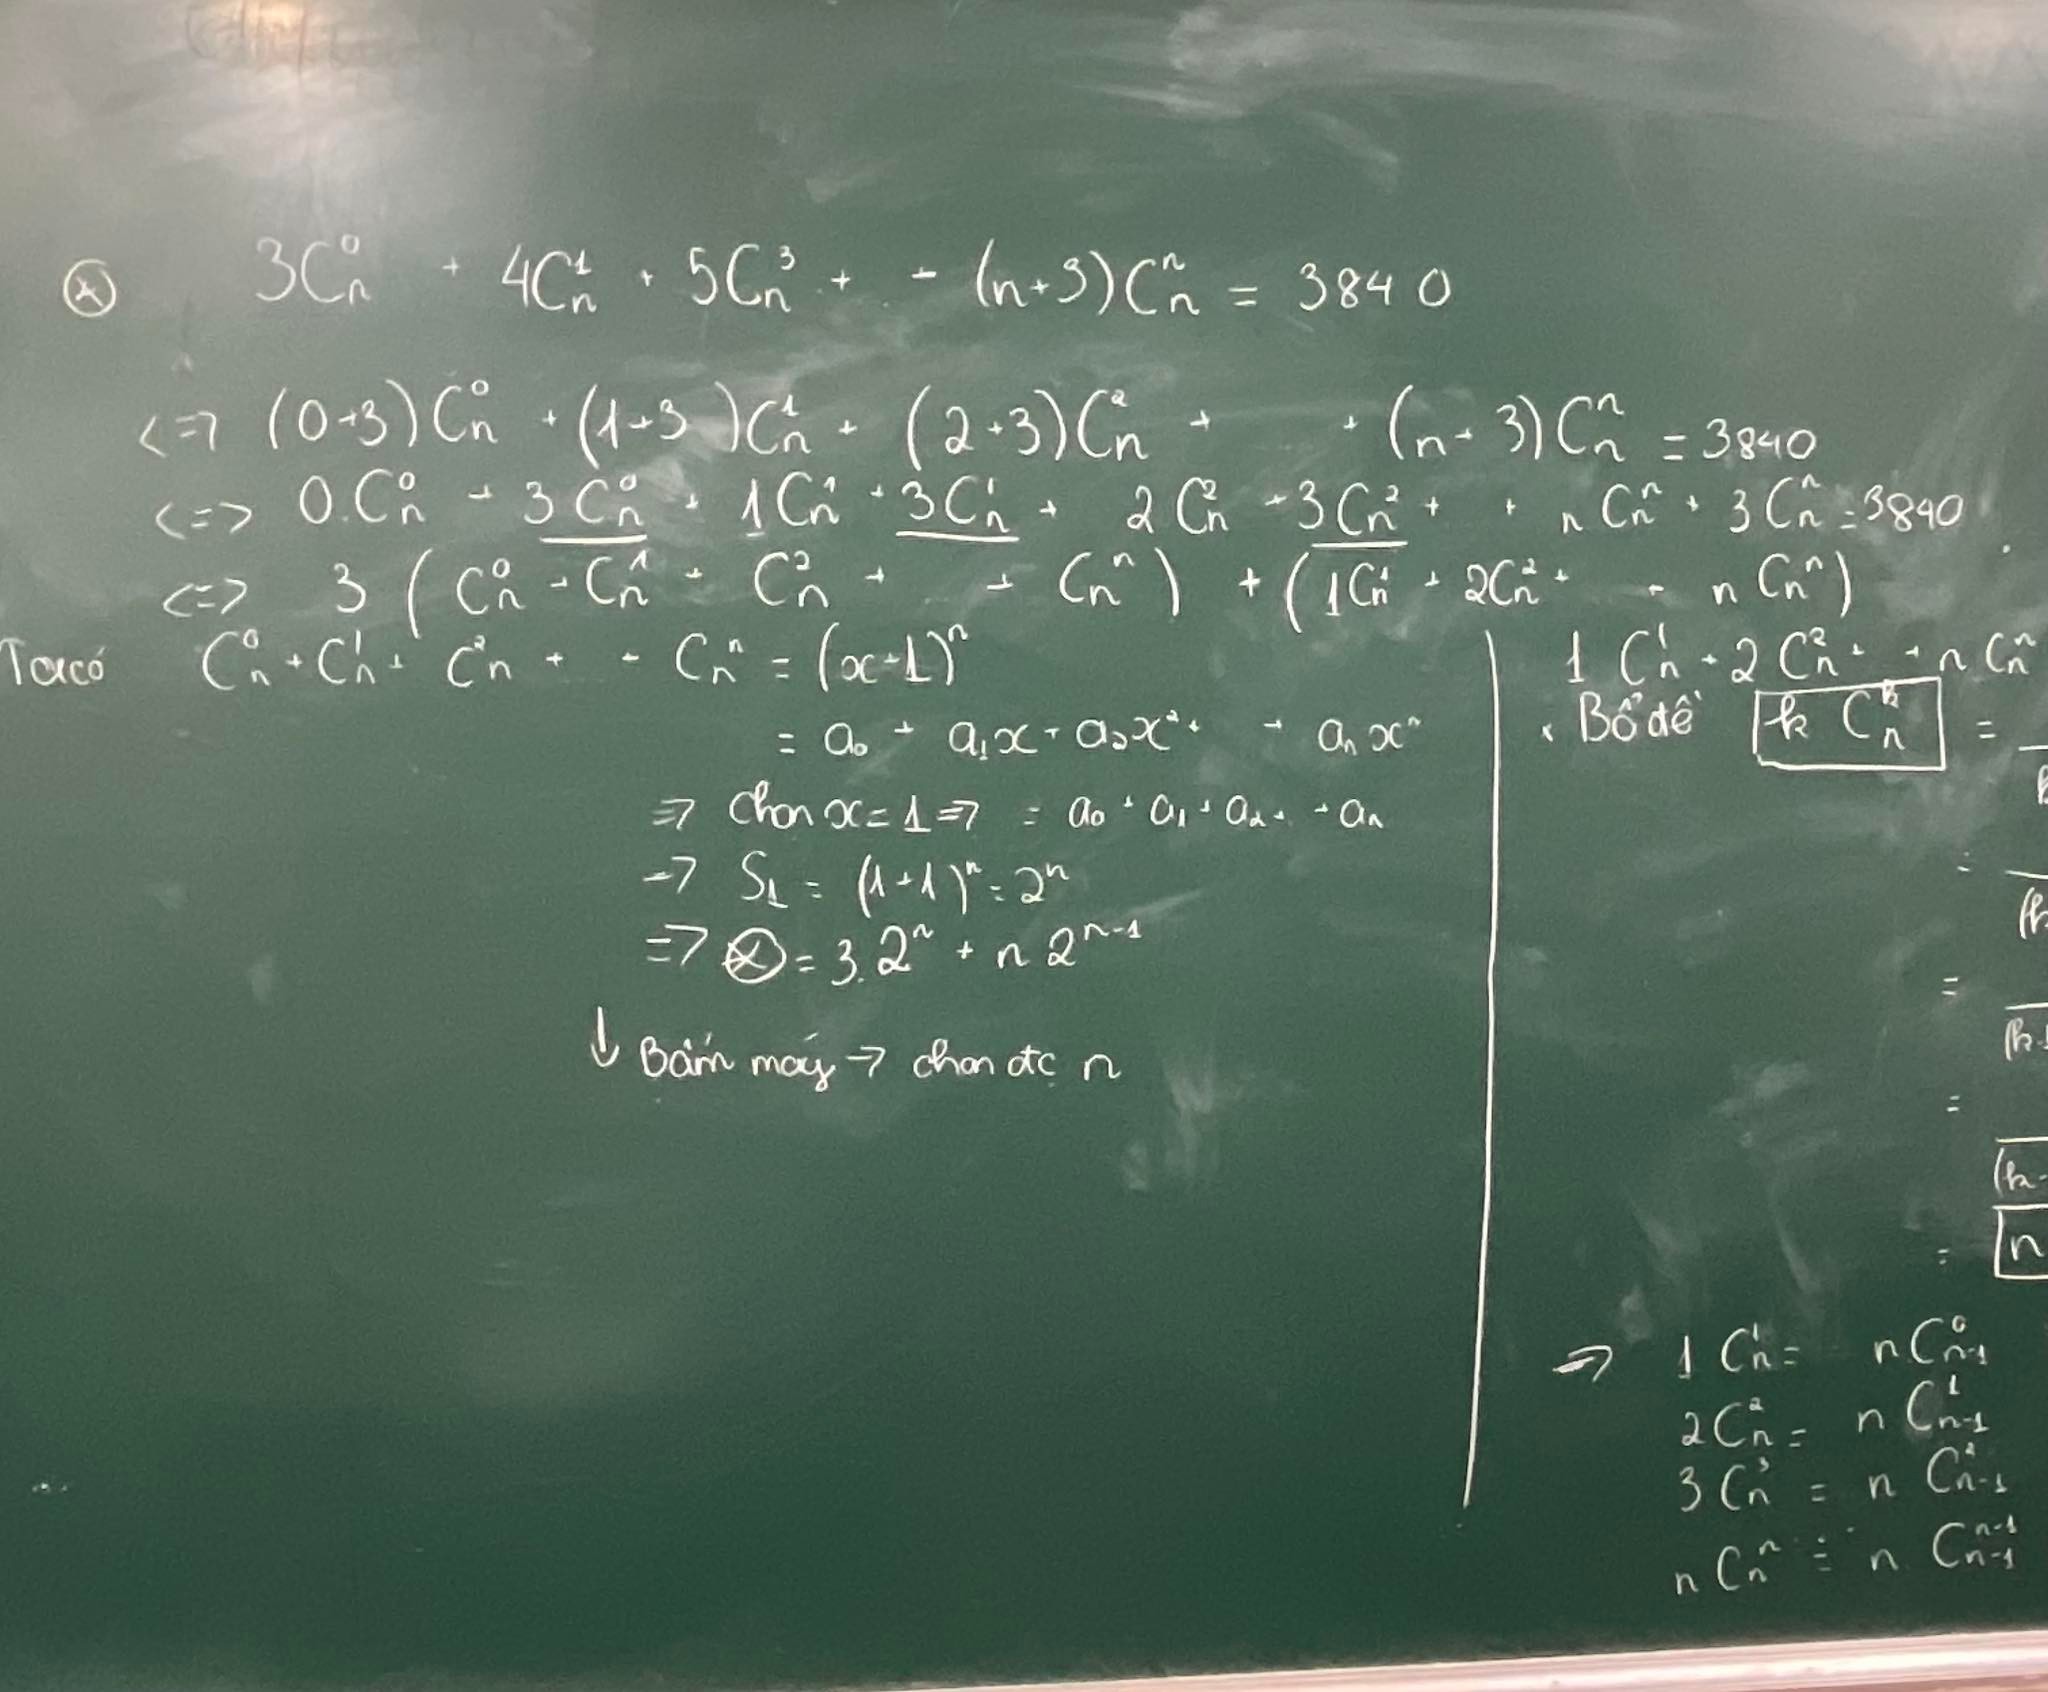 (*) 3C_n^0 + 4C_n^1 + 5C_n^3 + .. - (n+3)C_n^n = 3840
<=> (0+3)C_n^0 + (1+3)C_n^1 + (2+3)C_n^2 + + (n+3)C_n^n = 3840
<=> 0.C_n^0 + 3C_n^0 + 1C_n^1 + 3C_n^1 + 2C_n^2 + 3C_n^2 + + nC_n^n + 3C_n^n = 3840
<=> 3(C_n^0 + C_n^1 + C_n^2 + + C_n^n) + (1C_n^1 + 2C_n^2 + - nC_n^n)
Ta có C_n^0 + C_n^1 + C_n^2 + - C_n^n = (x+1)^n
= a_0 + a_1x + a_2x^2 + + a_nx^n
=> chọn x = 1 => = a_0 + a_1 + a_2 + + a_n
-> S_1 = (1+1)^n = 2^n
=> (*) = 3.2^n + n 2^{n-1}
↓ Bấm máy -> chọn đc n
1C_n^1 + 2C_n^2 + + nC_n^n
* Bổ đề k C_n^k =
=
= (k-
= (k-
= n
=> 1C_n^1 = nC_{n-1}^0
2C_n^2 = nC_{n-1}^1
3C_n^3 = nC_{n-1}^2
nC_n^n = n.C_{n-1}^{n-1}